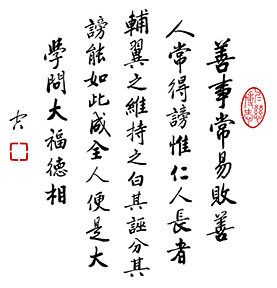 善事常易敗善
人常得謗惟仁人長者
輔翼之維持之白其誣分其
謗能如此成全人便是大
學問大福德相